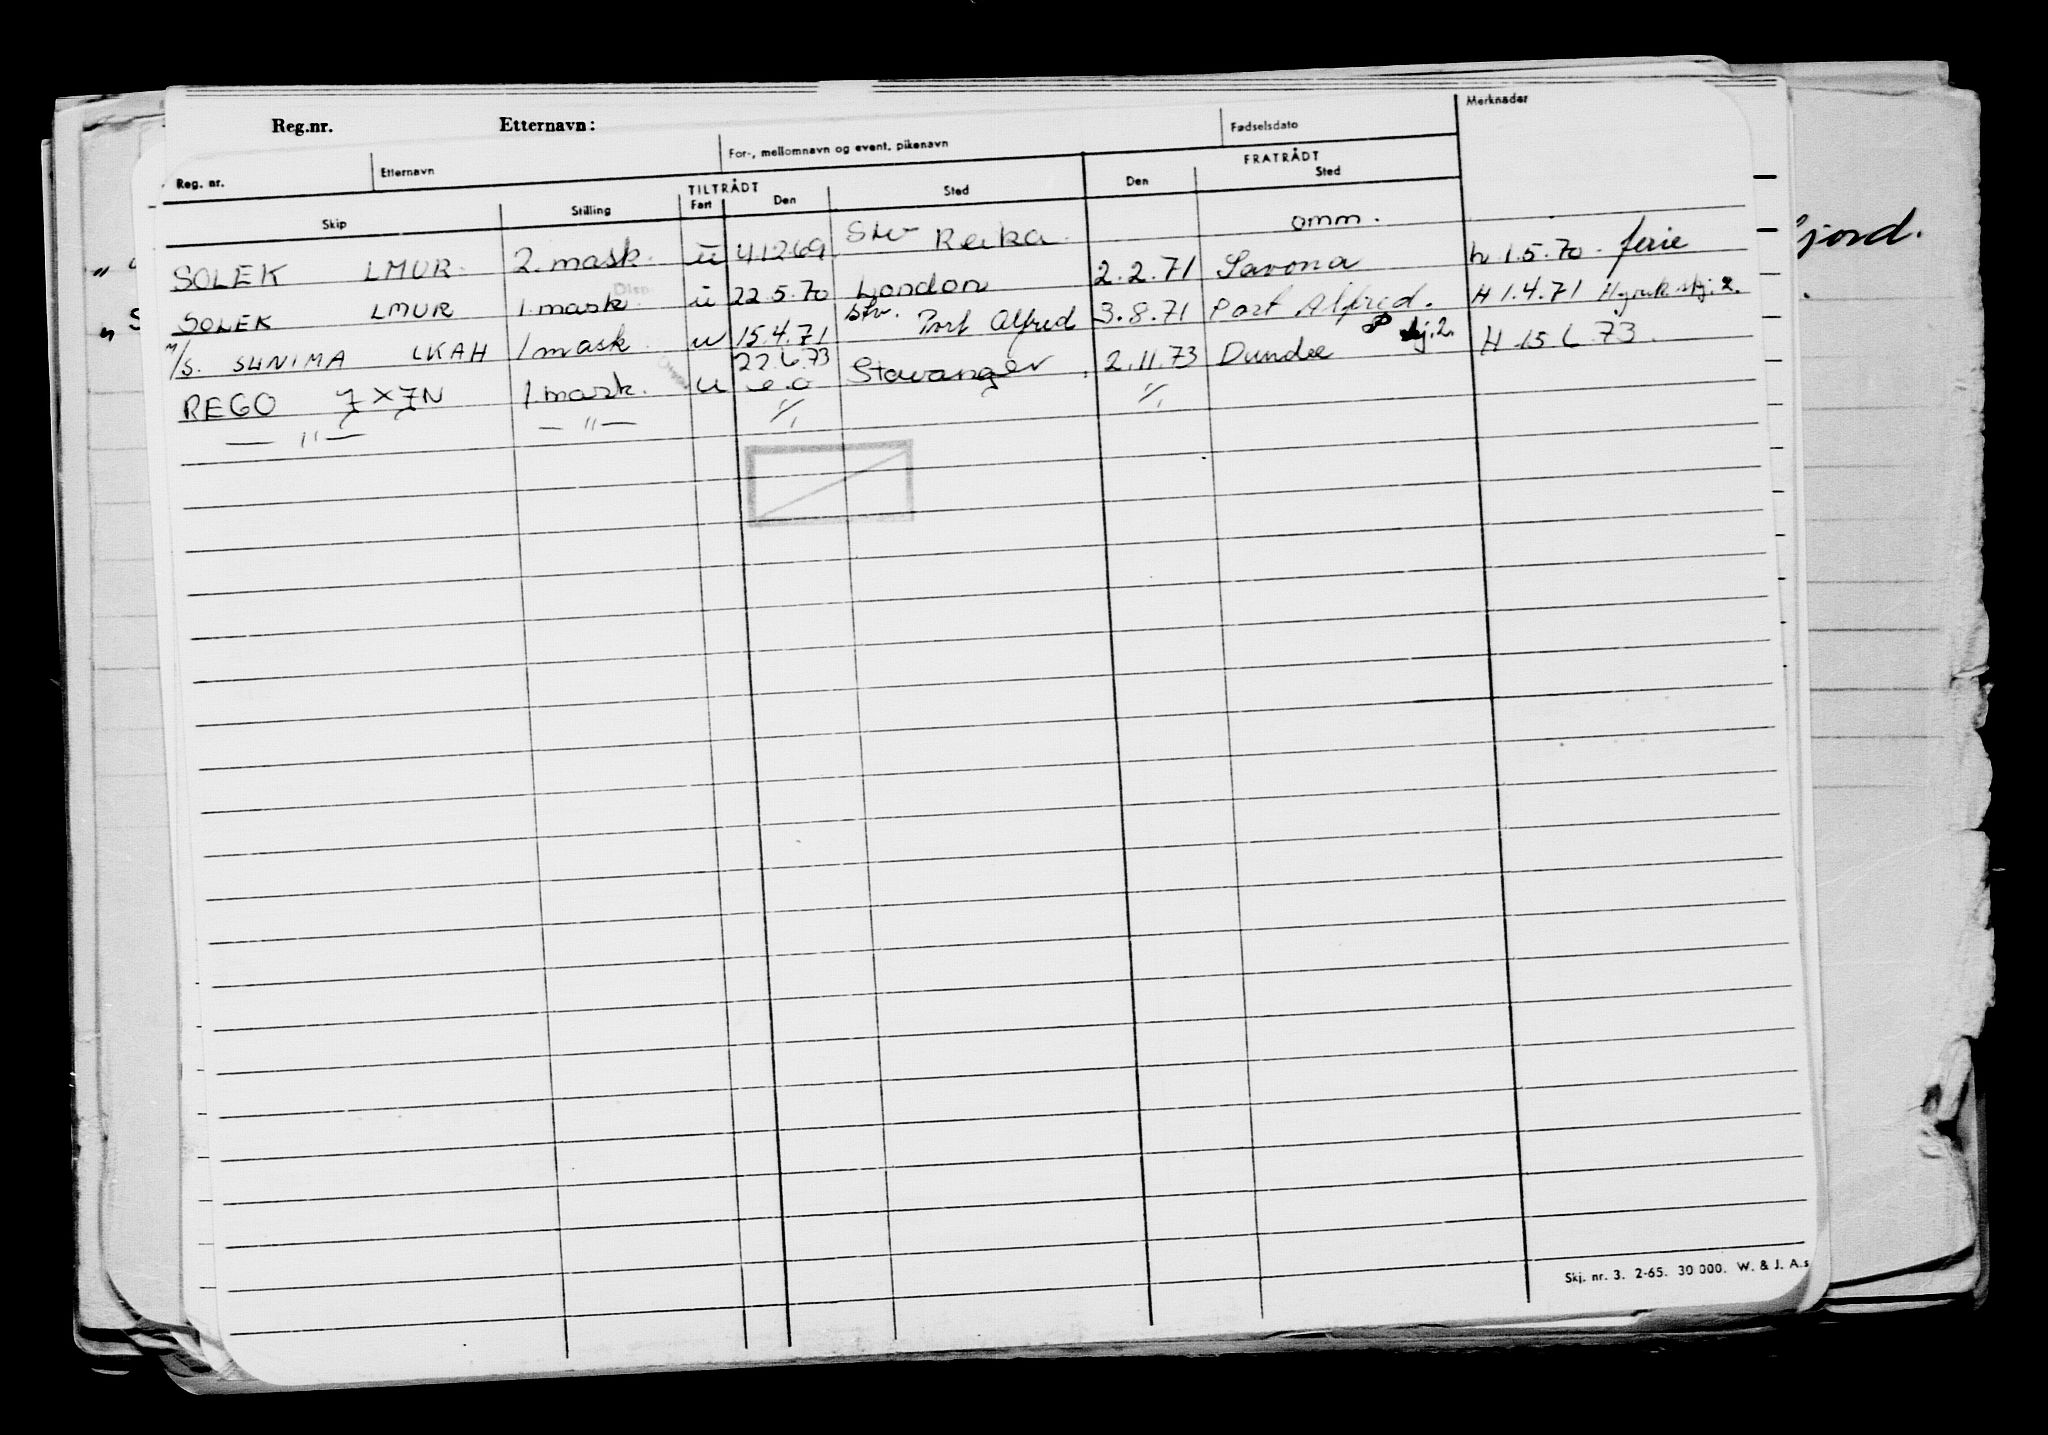 Reg.nr. Etternavn: Merknader
Reg. nr. Etternavn For-, mellomnavn og event. pikenavn Fødselsdato
TILTRÅDT FRATRÅDT
Skip Stilling Fart Den Sted Den Sted
SOLEK LMUR. 2. mask. u 4.12.69. Stv Reka omm.
SOLEK LMUR 1. mask. u 22.5.70 London 2.2.71 Savona h 1.5.70. ferie
M/S. SUNIMA LKAH 1 mask. u 15.4.71 Stv. Port Alfred 3.8.71 Port Alfred. H 1.4.71 skj. 2.
REGO JXJN 1. mask. u 22.6.73 Stavanger. 2.11.73 Dundee skj. 2. H 15 6 73.
— " — — " —
jord.
Skj. nr. 3. 2-65. 30 000. W. & J. A.s